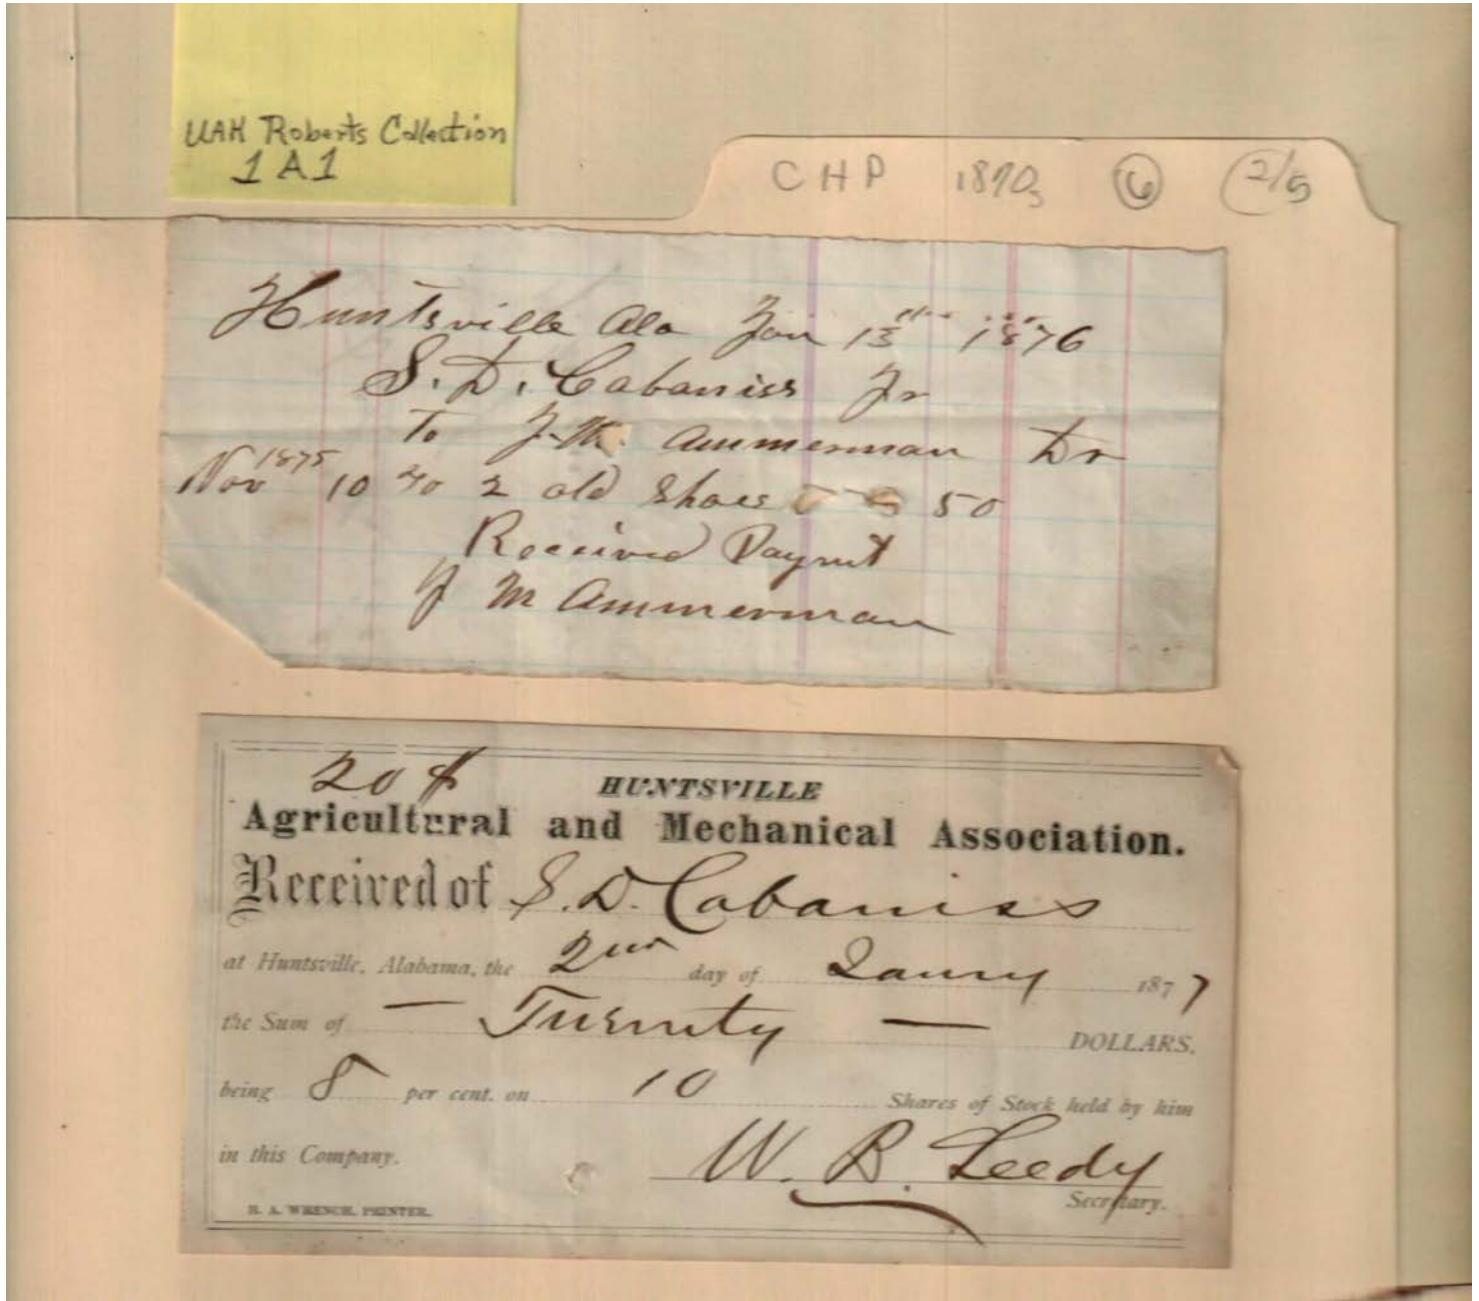 UAH Roberts Collection
1A1
CHP 1870s 6 2/5
Huntsville Ala Jan 13 1876
S. D. Cabaniss Jr
To J. M. Ammerman Dr
1875
Nov 10 To 2 old Shoes 50
Received Paymt
J M Ammerman
20 $
HUNTSVILLE
Agricultural and Mechanical Association.
Received of S. D. Cabaniss
at Huntsville, Alabama, the 2nd day of Jany 1877
the Sum of — Twenty — DOLLARS.
being 8 per cent. on 10 Shares of Stock held by him
in this Company. W. B. Leedy
Secretary.
H. A. WRENCH, PRINTER.